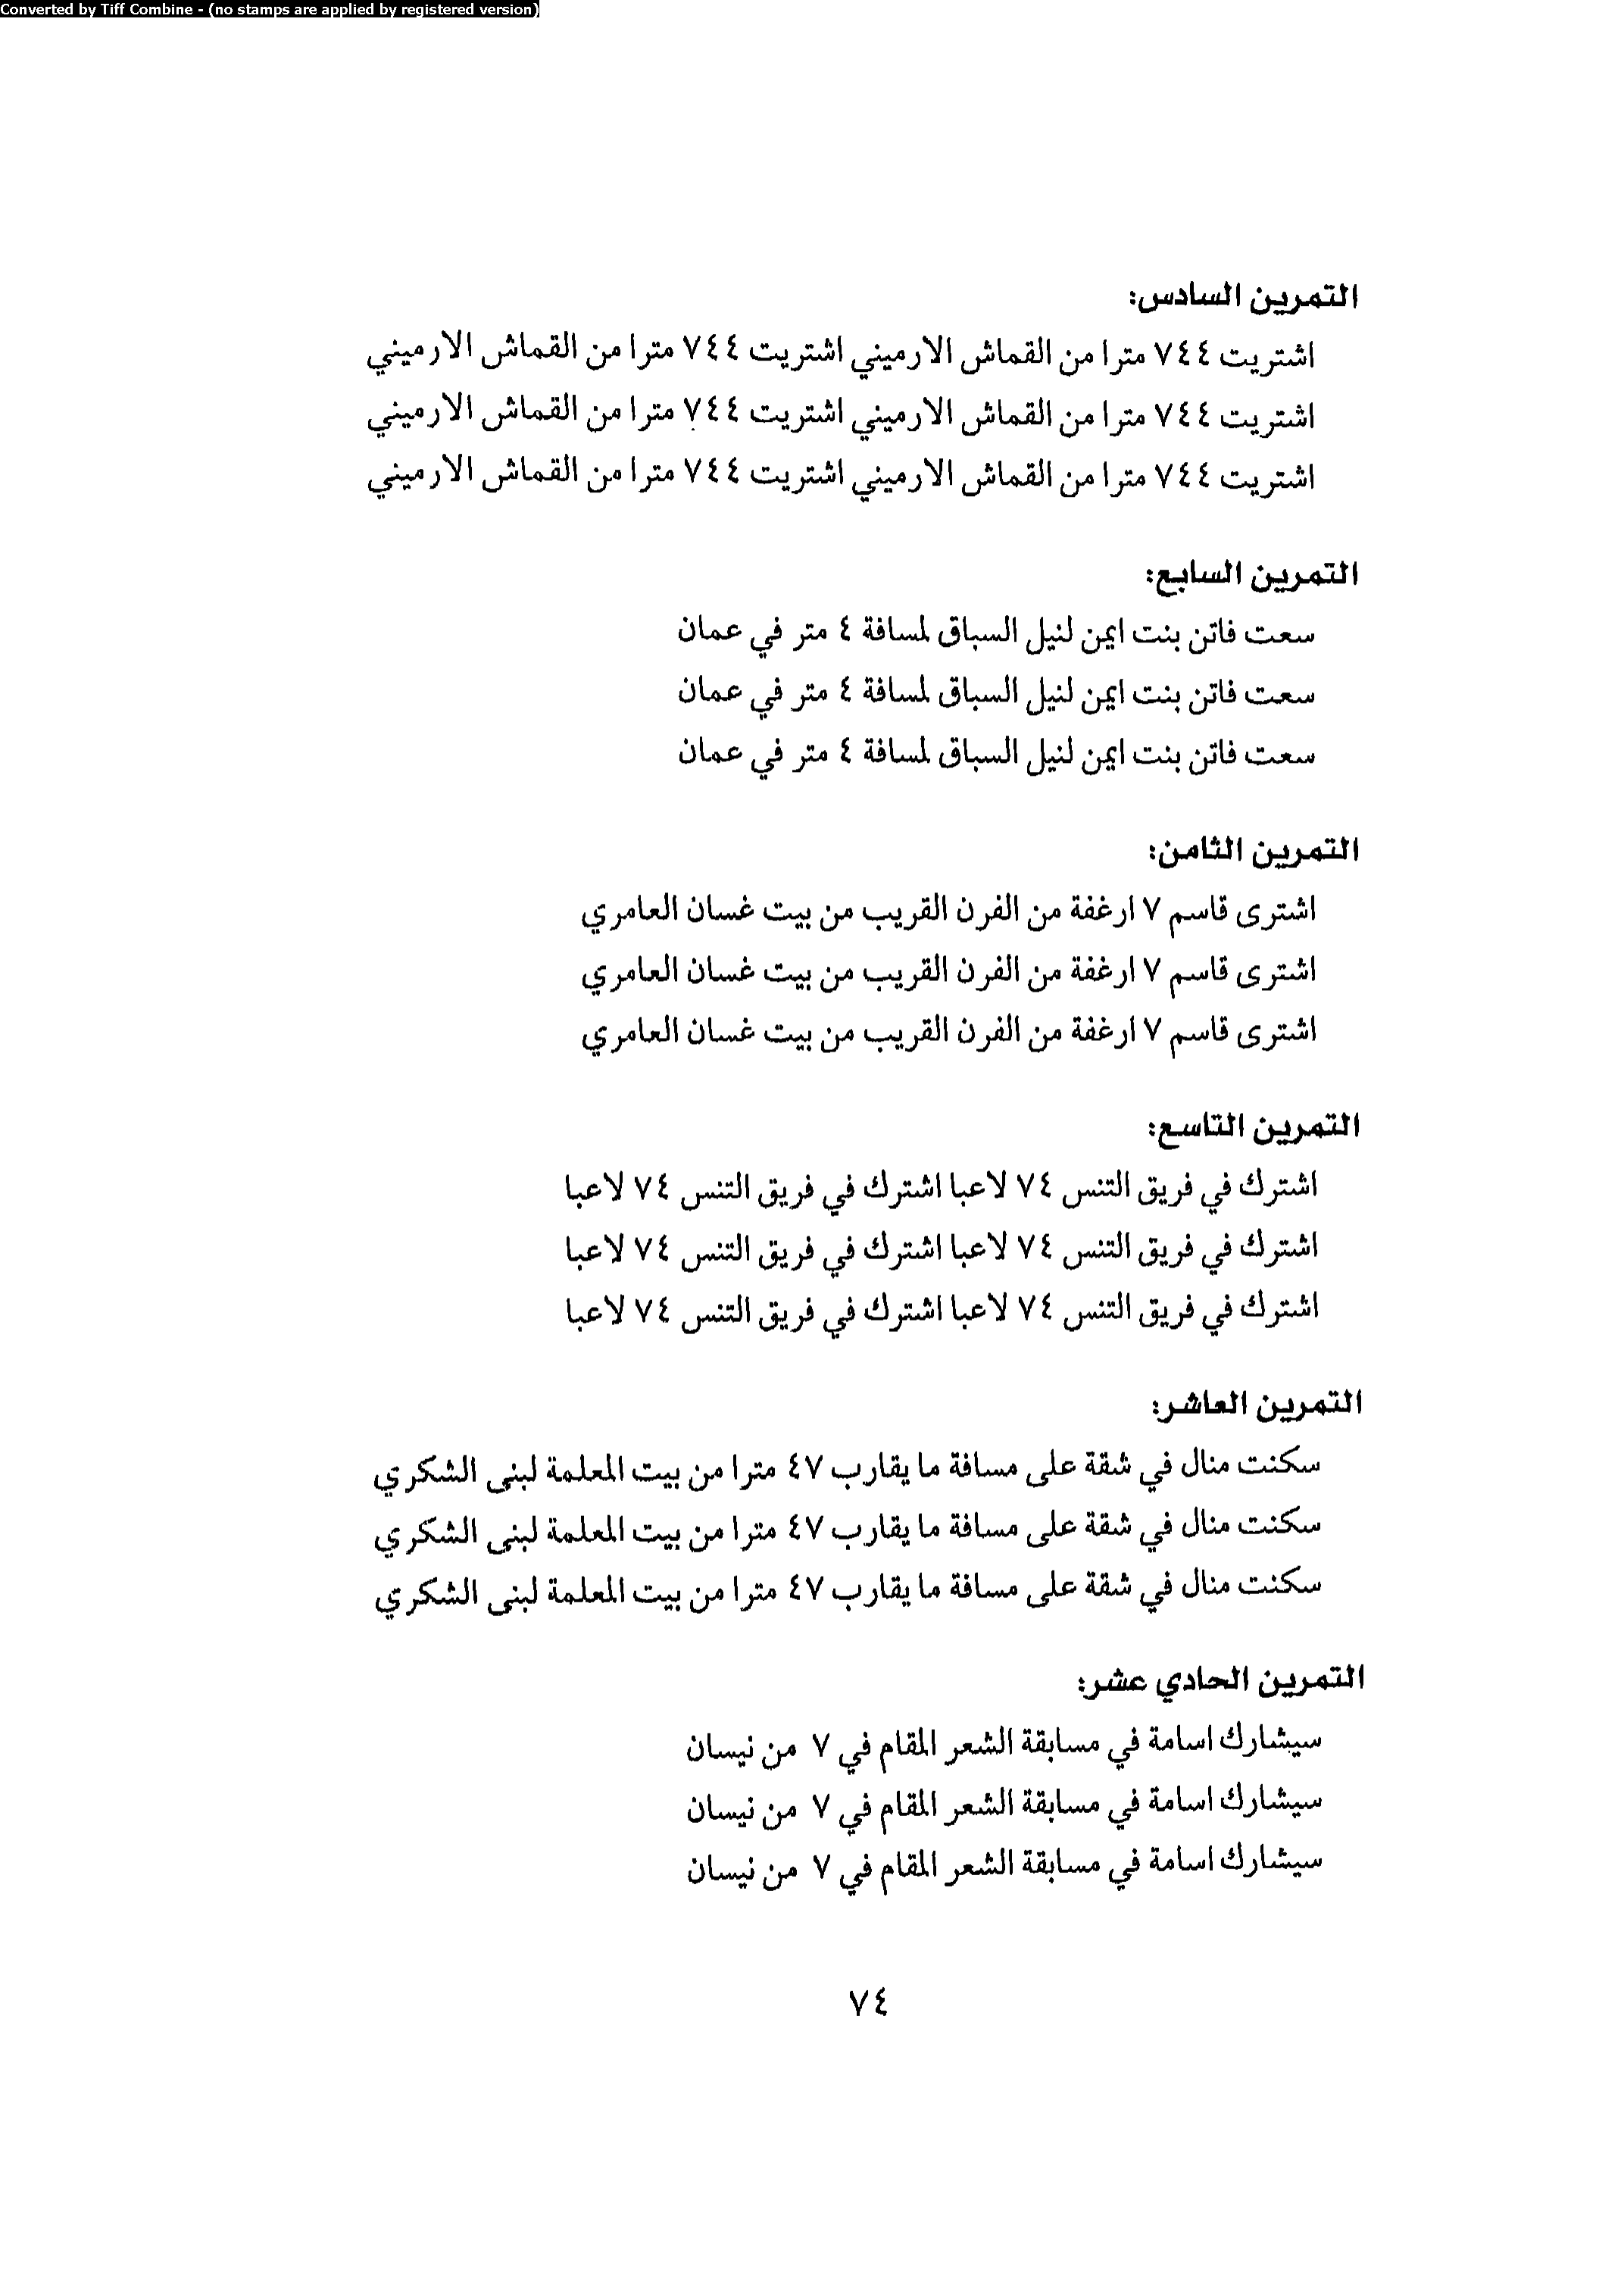 Converted by Tiff Combine - (no stamps are applied by registered version)
التمرين السادس:
اشتريت ٧٤٤ مترا من القماش الارميني اشتريت ٧٤٤ مترا من القماش الارميني
اشتريت ٧٤٤ مترا من القماش الارميني اشتريت ٧٤٤ مترا من القماش الارميني
اشتريت ٧٤٤ مترا من القماش الارميني اشتريت ٧٤٤ مترا من القماش الارميني
التمرين السابع:
سعت فاتن بنت ايمن لنيل السباق لمسافة ٤ متر في عمان
سعت فاتن بنت ايمن لنيل السباق لمسافة ٤ متر في عمان
سعت فاتن بنت ايمن لنيل السباق لمسافة ٤ متر في عمان
التمرين الثامن:
اشترى قاسم ٧ ارغفة من الفرن القريب من بيت غسان العامري
اشترى قاسم ٧ ارغفة من الفرن القريب من بيت غسان العامري
اشترى قاسم ٧ ارغفة من الفرن القريب من بيت غسان العامري
التمرين التاسع:
اشترك في فريق التنس ٧٤ لاعبا اشترك في فريق التنس ٧٤ لاعبا
اشترك في فريق التنس ٧٤ لاعبا اشترك في فريق التنس ٧٤ لاعبا
اشترك في فريق التنس ٧٤ لاعبا اشترك في فريق التنس ٧٤ لاعبا
التمرين العاشر:
سكنت منال في شقة على مسافة ما يقارب ٤٧ مترا من بيت المعلمة لبنى الشكري
سكنت منال في شقة على مسافة ما يقارب ٤٧ مترا من بيت المعلمة لبنى الشكري
سكنت منال في شقة على مسافة ما يقارب ٤٧ مترا من بيت المعلمة لبنى الشكري
التمرين الحادي عشر:
سيشارك اسامة في مسابقة الشعر المقام في ٧ من نيسان
سيشارك اسامة في مسابقة الشعر المقام في ٧ من نيسان
سيشارك اسامة في مسابقة الشعر المقام في ٧ من نيسان
٧٤